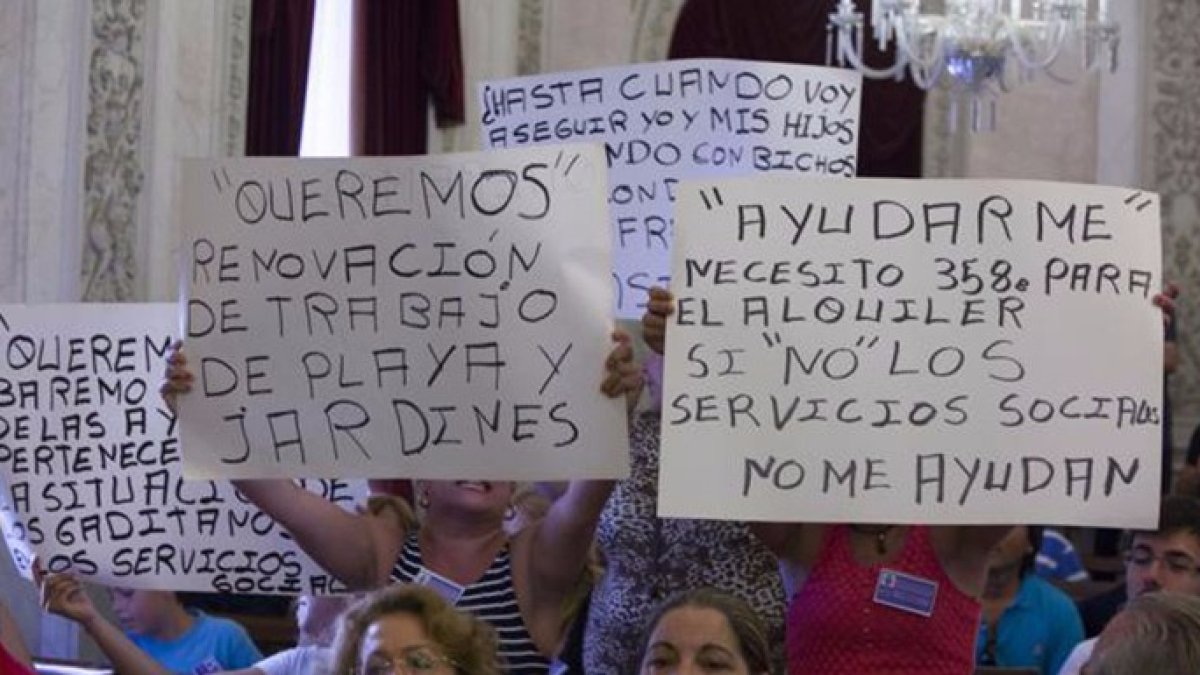 ¿HASTA CUANDO VOY
A SEGUIR YO Y MIS HIJOS
CON BICHOS
"QUEREMOS"
RENOVACIÓN
DE TRABAJO
DE PLAYA Y
JARDINES
"AYUDARME"
NECESITO 358€ PARA
EL ALQUILER
SI "NO" LOS
SERVICIOS SOCIALES
NO ME AYUDAN
BAREMO
DE LAS
PERTENECE
SITUACI
GADITANO
LOS SERVICIOS
SOCIAL